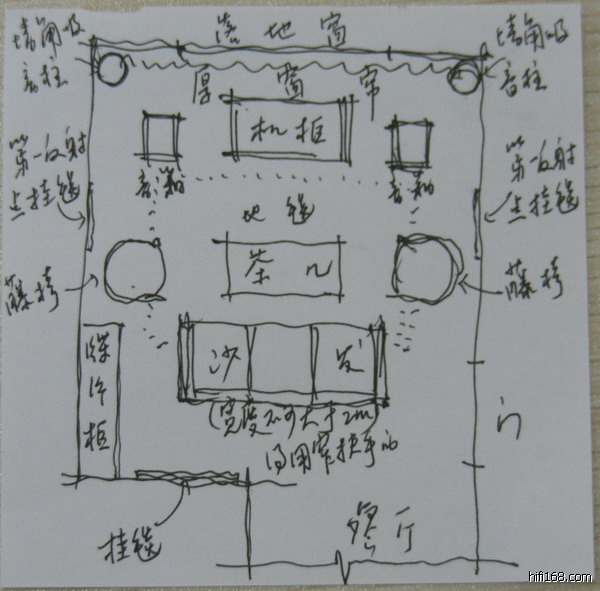 落地窗
墙角吸
音柱
墙角吸
音柱
厚窗帘
机柜
音箱
音箱
第一反射
点挂毯
第一反射
点挂毯
地毯
茶几
藤椅
藤椅
沙发
碟片柜
(宽度不可大于2m)
门
挂毯
餐厅
hifi168.com